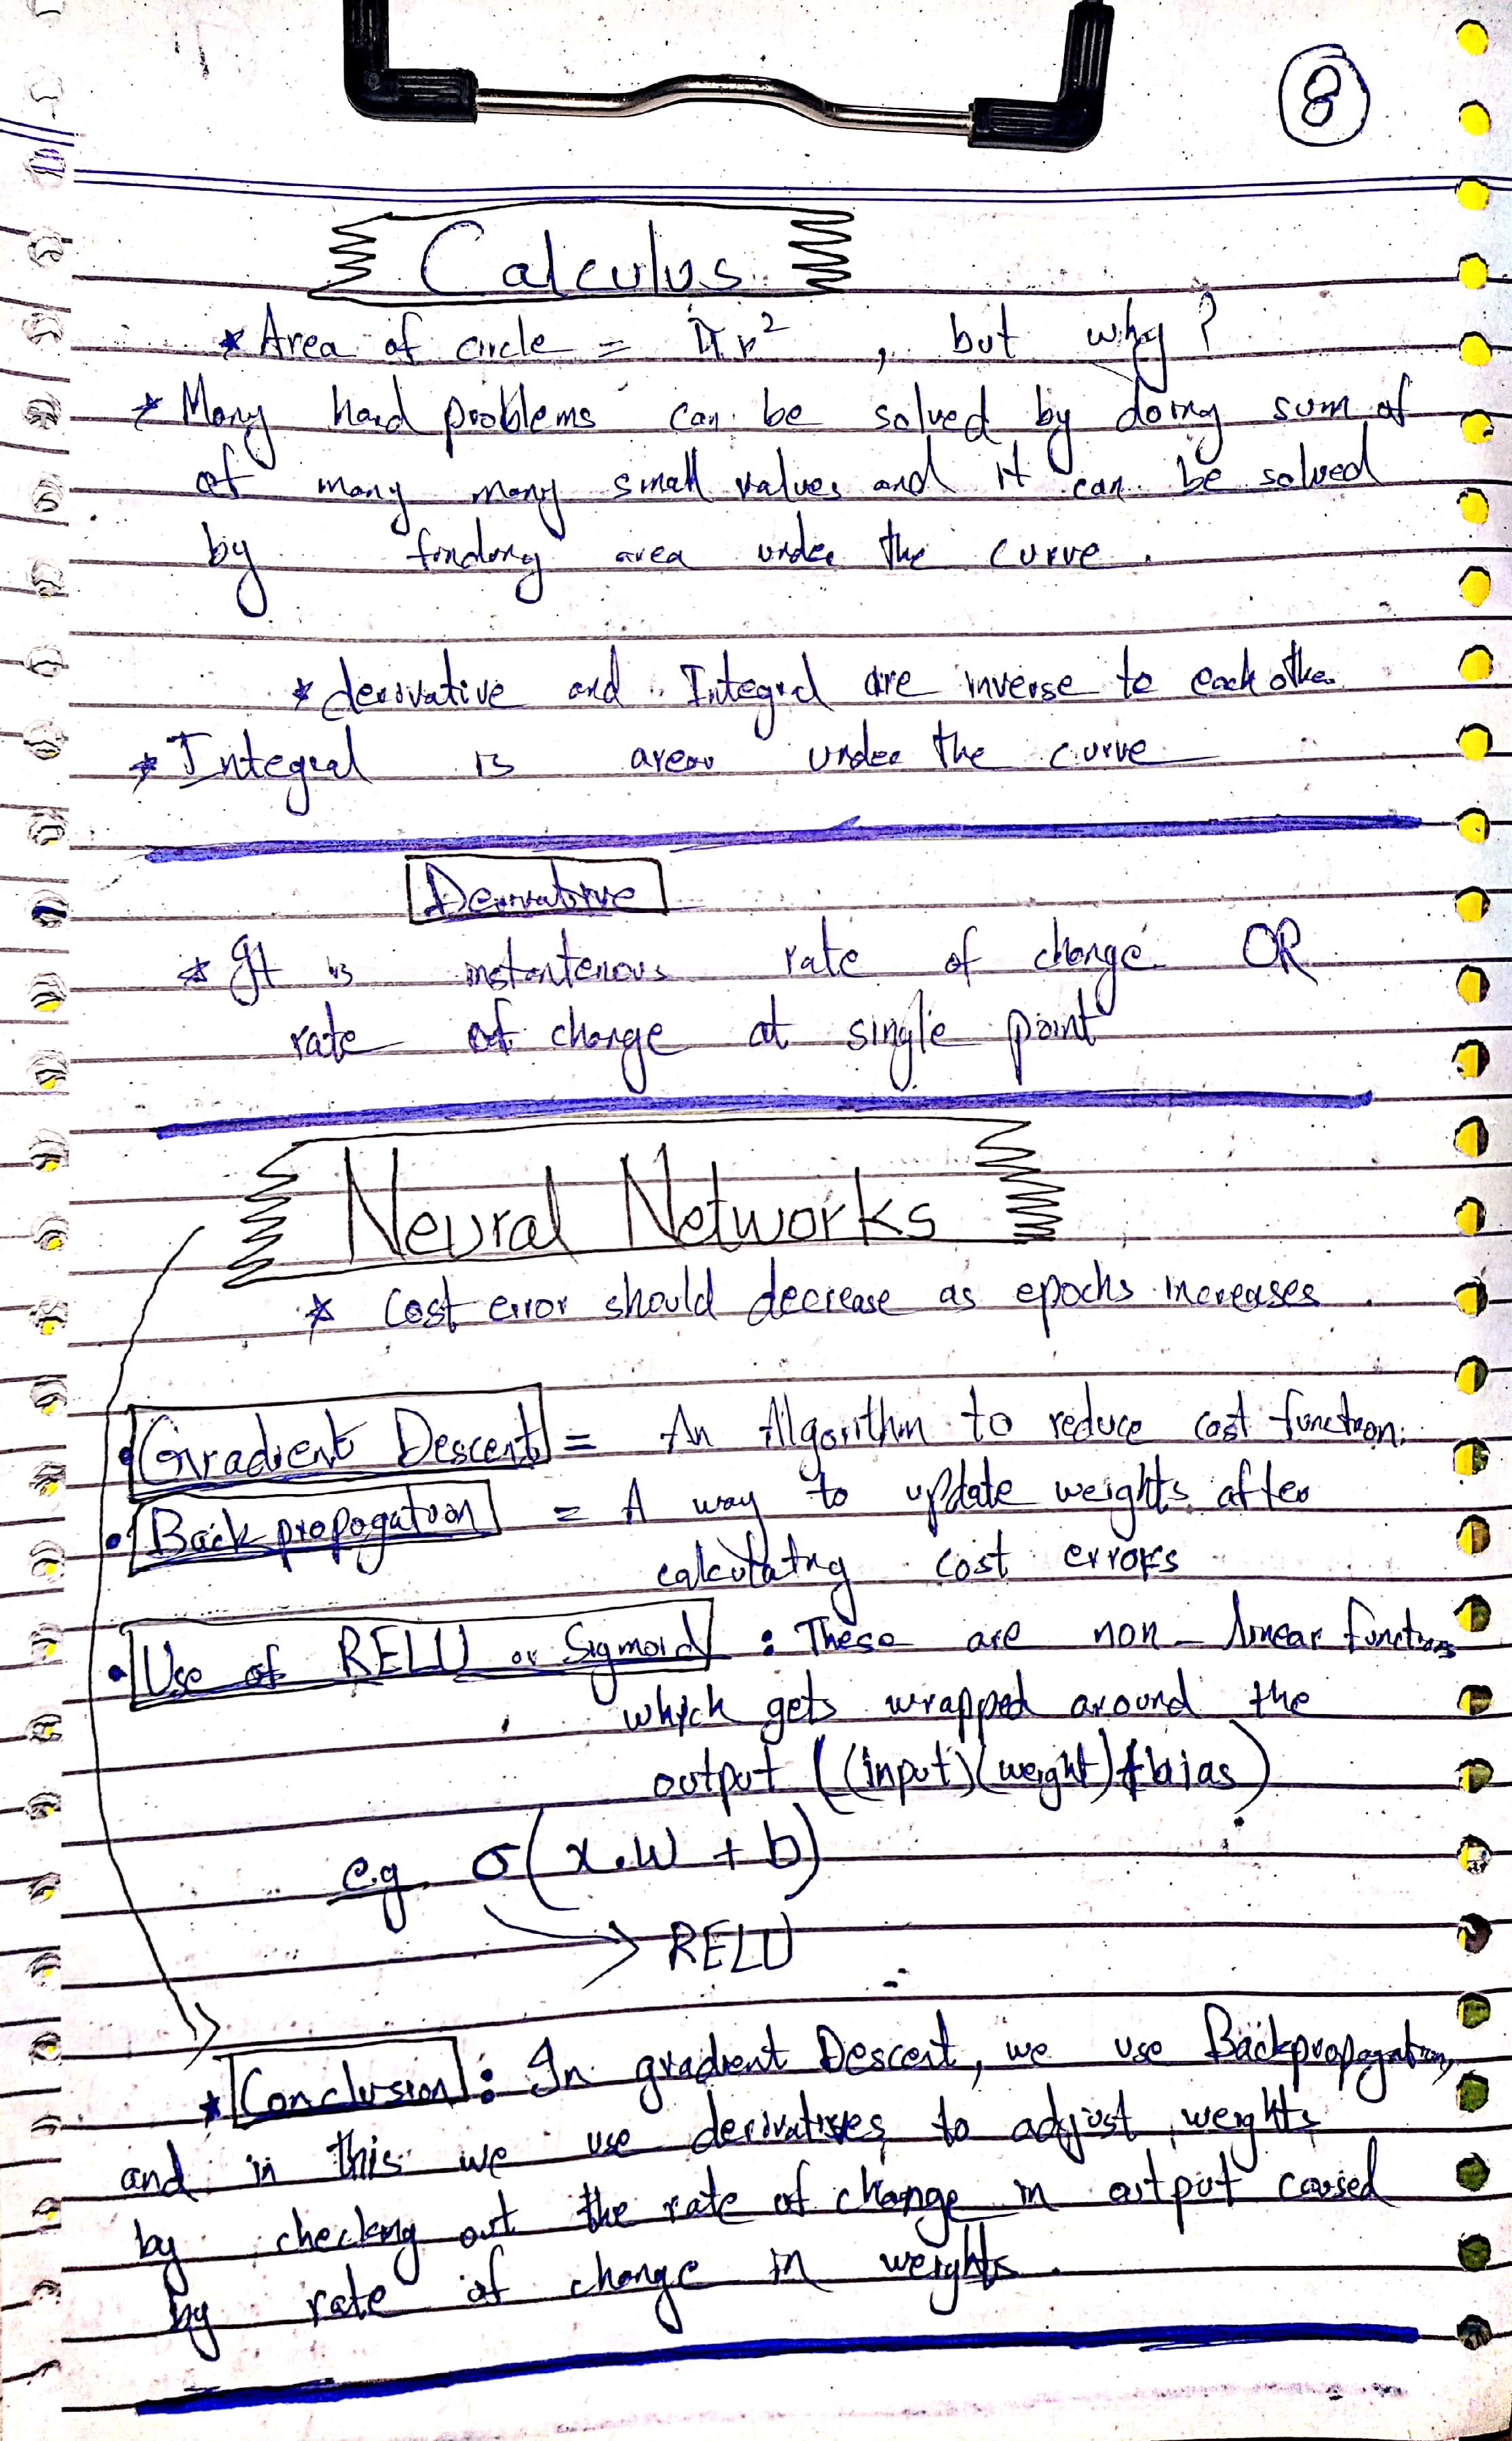 8
Calculus
* Area of circle = πr², but why?
* Many hard problems can be solved by doing sum of
of many many small values and it can be solved
by finding area under the curve.
* derivative and Integral are inverse to each other
* Integral is area under the curve
Derivative
* It is instantenous rate of change OR
rate of change at single point
Neural Networks
* Cost error should decrease as epochs increases.
• Gradient Descent = An Algorithm to reduce cost function.
• Backpropogation = A way to update weights after
calculating cost errors
• Use of RELU or Sigmoid : These are non-linear functions
which gets wrapped around the
output ((input)(weight)+bias)
e.g σ(x.w + b)
RELU
* Conclusion : In gradient Descent, we use Backpropagation,
and in this we use derivatives to adjust weights
by checking out the rate of change in output caused
by rate of change in weights.